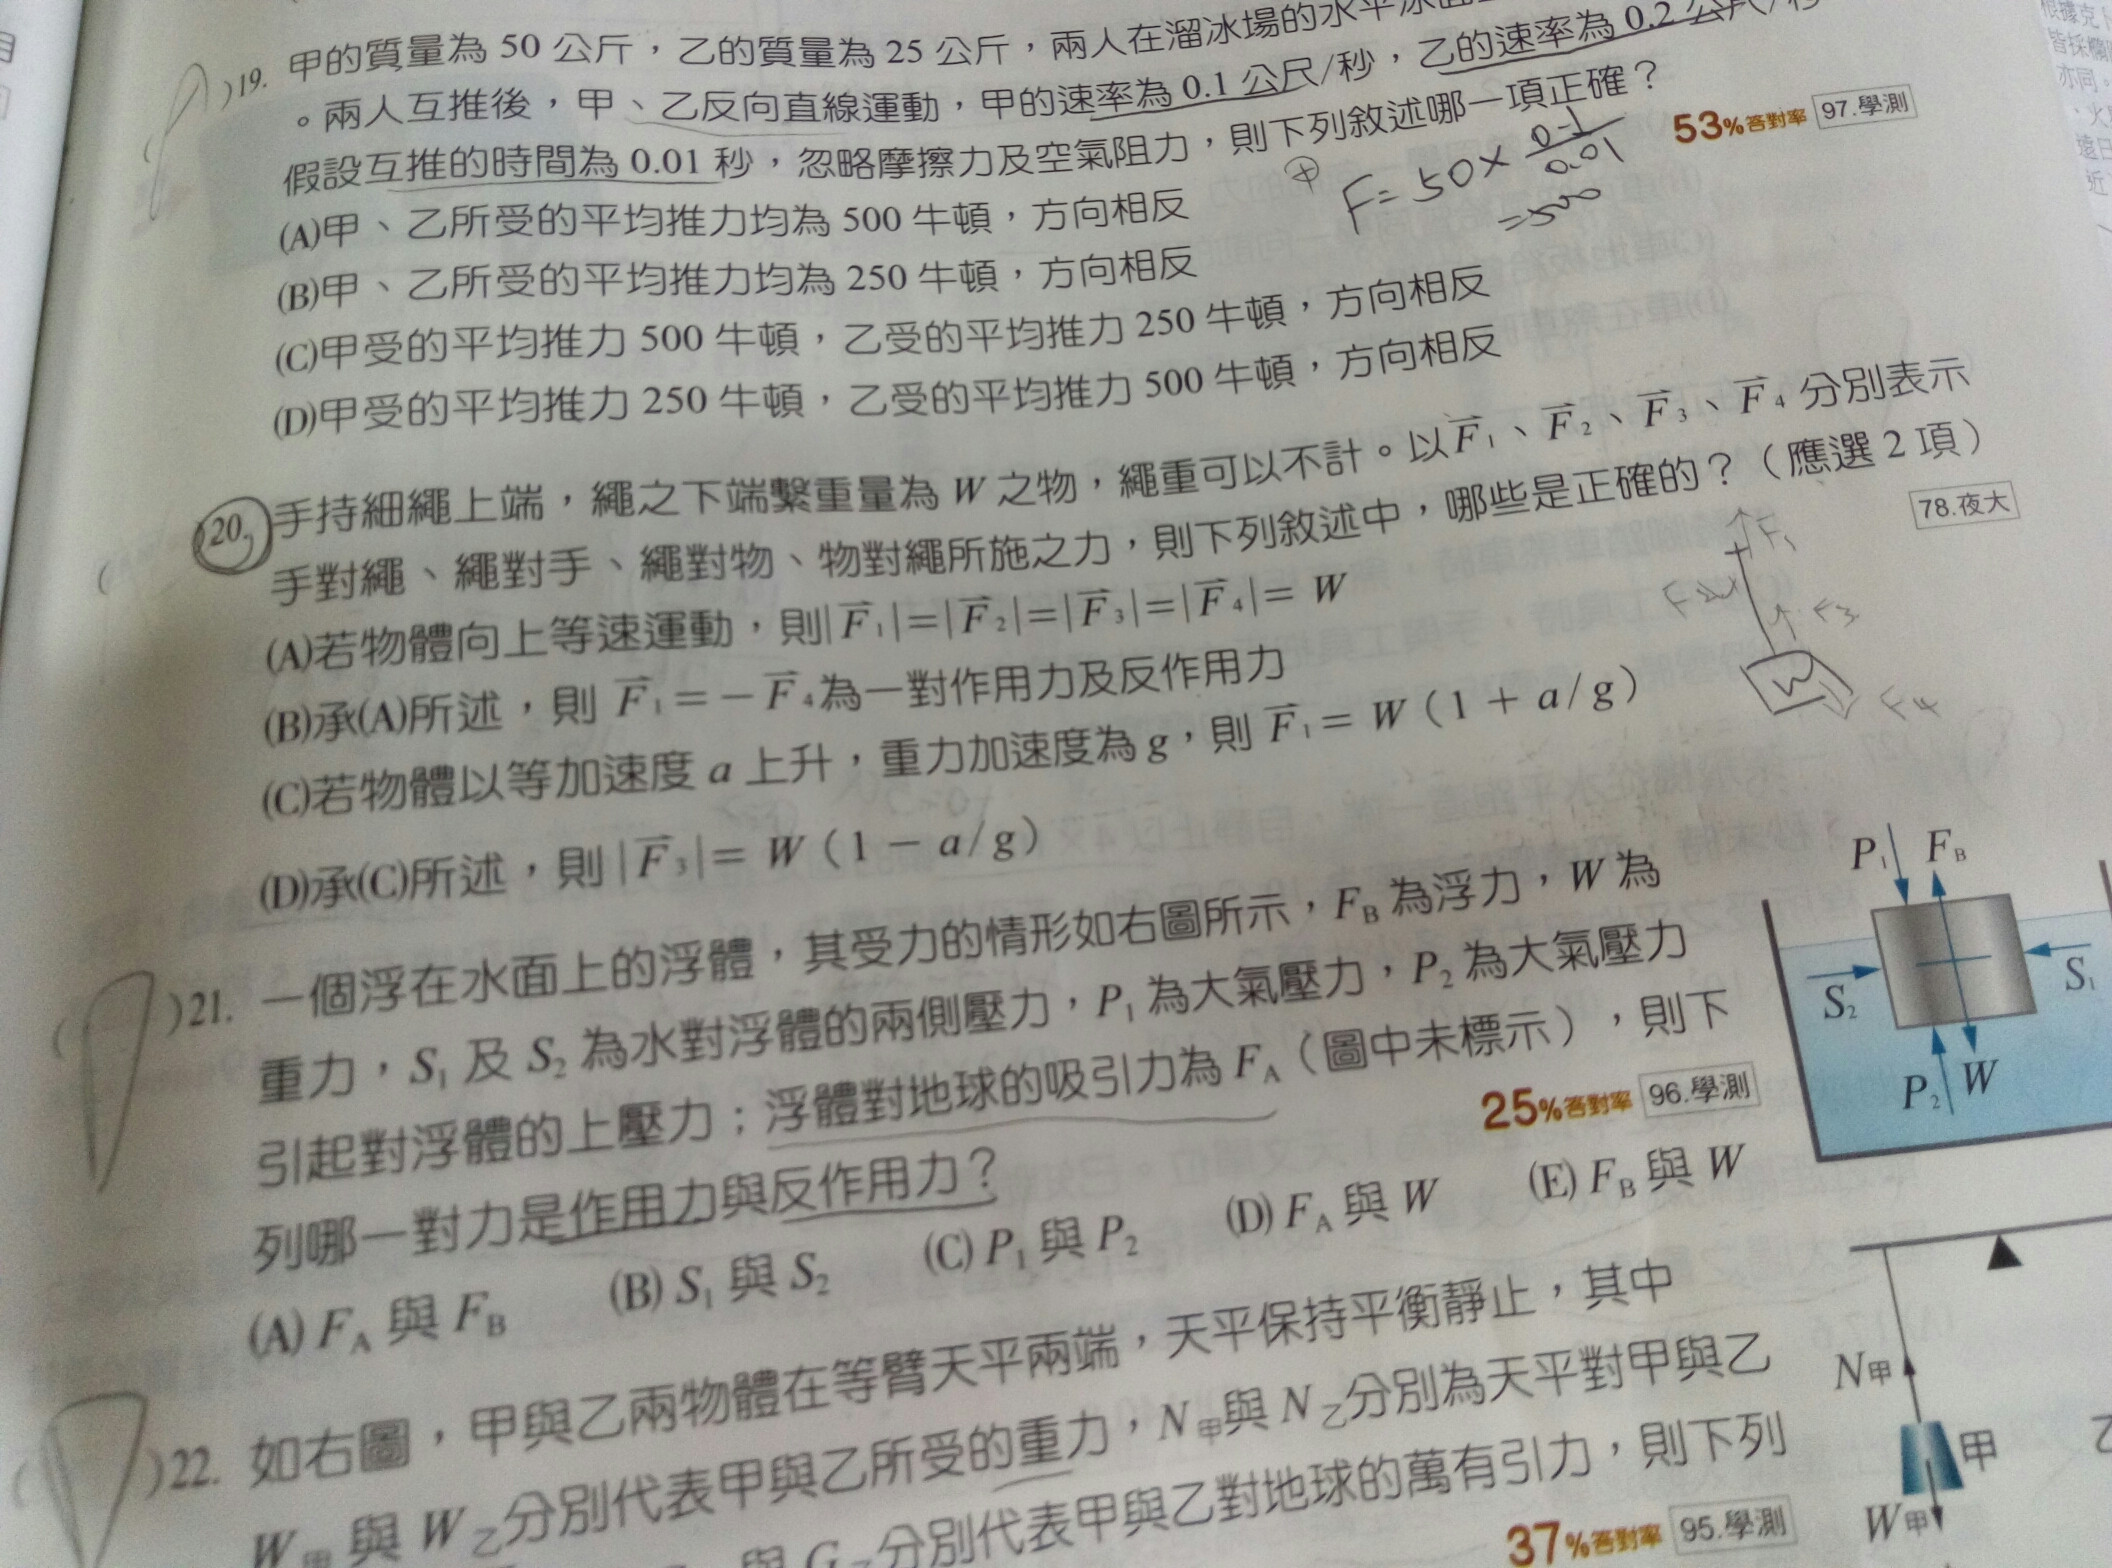 )19. 甲的質量為 50 公斤，乙的質量為 25 公斤，兩人在溜冰場的水平冰面
。兩人互推後，甲、乙反向直線運動，甲的速率為 0.1 公尺/秒，乙的速率為 0.2 公尺/秒
假設互推的時間為 0.01 秒，忽略摩擦力及空氣阻力，則下列敘述哪一項正確？
53%答對率 97.學測
F=50×0.1/0.01
=500
(A)甲、乙所受的平均推力均為 500 牛頓，方向相反
(B)甲、乙所受的平均推力均為 250 牛頓，方向相反
(C)甲受的平均推力 500 牛頓，乙受的平均推力 250 牛頓，方向相反
(D)甲受的平均推力 250 牛頓，乙受的平均推力 500 牛頓，方向相反
)20. 手持細繩上端，繩之下端繫重量為 W 之物，繩重可以不計。以F⃗₁、F⃗₂、F⃗₃、F⃗₄ 分別表示
手對繩、繩對手、繩對物、物對繩所施之力，則下列敘述中，哪些是正確的？（應選 2 項）
78.夜大
(A)若物體向上等速運動，則|F⃗₁|=|F⃗₂|=|F⃗₃|=|F⃗₄|= W
(B)承(A)所述，則 F⃗₁=－F⃗₄為一對作用力及反作用力
(C)若物體以等加速度 a 上升，重力加速度為 g，則 F⃗₁= W（1 + a/g）
(D)承(C)所述，則|F⃗₃|= W（1 － a/g）
F₁
F₂
F₃
W
F₄
)21. 一個浮在水面上的浮體，其受力的情形如右圖所示，F_B 為浮力，W 為
重力，S₁ 及 S₂ 為水對浮體的兩側壓力，P₁ 為大氣壓力，P₂ 為大氣壓力
引起對浮體的上壓力；浮體對地球的吸引力為 F_A（圖中未標示），則下
列哪一對力是作用力與反作用力？
25%答對率 96.學測
(A) F_A 與 F_B (B) S₁ 與 S₂ (C) P₁ 與 P₂ (D) F_A 與 W (E) F_B 與 W
P₁ F_B
S₂ S₁
P₂ W
)22. 如右圖，甲與乙兩物體在等臂天平兩端，天平保持平衡靜止，其中
W甲與 W乙分別代表甲與乙所受的重力，N甲與 N乙分別為天平對甲與乙
與 G乙分別代表甲與乙對地球的萬有引力，則下列
37%答對率 95.學測
N甲
甲
W甲